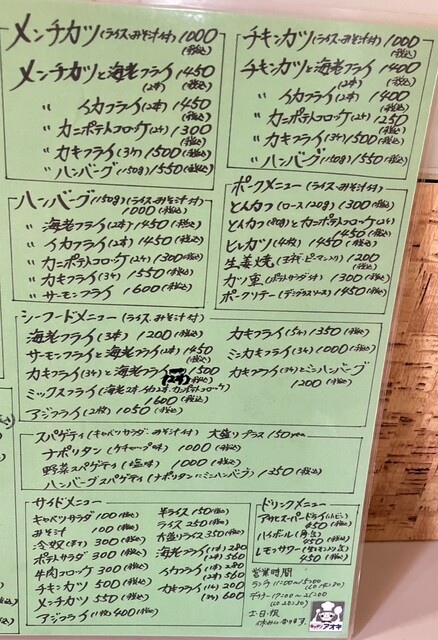 メンチカツ(ライス・みそ汁付)1000(税込)
メンチカツと海老フライ(2本)1450(税込)
〃 イカフライ(2本)1450(税込)
〃 カニポテトコロッケ(2ケ)1300(税込)
〃 カキフライ(3ケ)1500(税込)
〃 ハンバーグ(150g)1550(税込)
チキンカツ(ライス・みそ汁付)1000(税込)
チキンカツと海老フライ(2本)1400(税込)
〃 イカフライ(2本)1400(税込)
〃 カニポテトコロッケ(2ケ)1250(税込)
〃 カキフライ(3ケ)1500(税込)
〃 ハンバーグ(150g)1550(税込)
ハンバーグ(150g)(ライス・みそ汁付)
1000(税込)
〃 海老フライ(2本)1450(税込)
〃 イカフライ(2本)1450(税込)
〃 カニポテトコロッケ(2ケ)1300(税込)
〃 カキフライ(3ケ)1550(税込)
〃 サーモンフライ 1600(税込)
ポークメニュー(ライス・みそ汁付)
とんカツ(ロース120g)1300(税込)
とんかつ(80g)とカニポテトコロッケ(2ケ)
1450(税込)
ヒレカツ(4枚)1450(税込)
生姜焼(玉ネギ・ピーマン入り)1200(税込)
カツ重(ポテトサラダ付)1300(税込)
ポークソテー(デミグラスソース)1450(税込)
シーフードメニュー(ライス・みそ汁付)
海老フライ(3本)1200(税込)
サーモンフライと海老フライ(2本)1450(税込)
カキフライ(3ケ)と海老フライ(2本)1500(税込)
ミックスフライ(海老2本・イカ2本・カニポテトコロッケ)
1600(税込)
アジフライ(2枚)1050(税込)
カキフライ(5ケ)1350(税込)
ミニカキフライ(3ケ)1000(税込)
カキフライ(3ケ)とミニハンバーグ
1200(税込)
スパゲティ(キャベツサラダ・みそ汁付)大盛りプラス150yen
ナポリタン(ケチャップ味)1000(税込)
野菜スパゲティ(塩味)1000(税込)
ハンバーグスパゲティ(ナポリタン・ミニハンバーグ)1350(税込)
サイドメニュー
キャベツサラダ 100(税込)
みそ汁 100(税込)
冷奴 300(税込)
ポテトサラダ 300(税込)
牛肉コロッケ 300(税込)
チキンカツ 500(税込)
メンチカツ 550(税込)
アジフライ(1枚)400(税込)
半ライス 150(税込)
ライス 250(税込)
大盛りライス 350(税込)
海老フライ(1本)280(税込)
(2本)560
イカフライ(1本)280(税込)
(2本)560
カキフライ(1ケ)200(税込)
(3ケ)600
ドリンクメニュー
アサヒスーパードライ
ハイボール(角)
レモンサワー
営業時間
ランチ 11:00〜15:00
ディナー 17:00〜21:00
(LO 20:30)
土・日・祝
休みになります。
キッチンアオキ